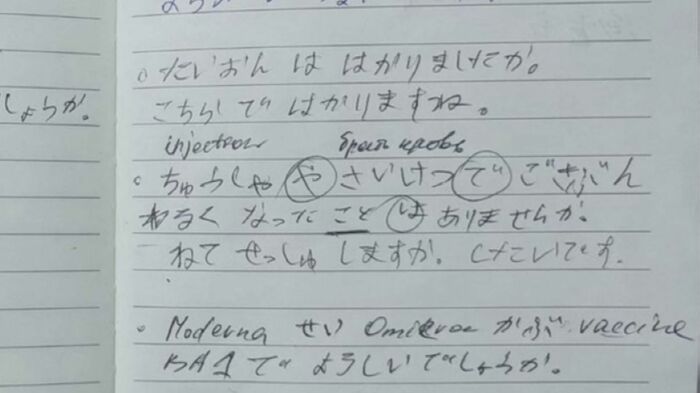 しょうか。
たいおん は はかりましたか。
こちらで はかりますね。
injection брать кровь
ちゅうしゃ や さいけつ で ごきぶん
わるく なった こと は ありませんか。
ねて せっしゅ しますか。 けっこいです。
Moderna せい Omicron かぶ vaccine
BA1 で ようしいでしょうか。